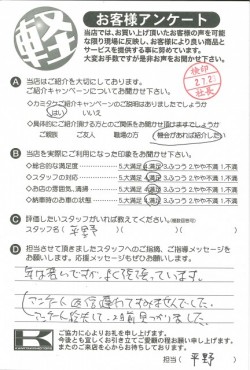 軽
お客様アンケート
当店では、お買い上げ頂いたお客様の声を可能
な限り現場に反映し、お客様により良い商品と
サービスを提供する事に努めています。
大変お手数ですが是非お声をお聞かせ下さい。
検印
2.7.21
社長
A 当店はご紹介を大切にしております。
ご紹介キャンペーンについてお聞かせ下さい。
はい いいえ
ご親族 ご友人 職場の方 機会があれば紹介したい
B 当店を実際にご利用になった印象をお聞かせ下さい。
◇総合的な満足度 5.大満足 4.満足 3.ふつう 2.やや不満 1.不満
◇スタッフの対応 5.大満足 4.満足 3.ふつう 2.やや不満 1.不満
◇お店の雰囲気、清掃 5.大満足 4.満足 3.ふつう 2.やや不満 1.不満
◇納車時のお車の状態 5.大満足 4.満足 3.ふつう 2.やや不満 1.不満
C 評価したいスタッフがいれば教えてください。(複数回答可)
スタッフ名( 平野 )( )
D 担当させて頂きましたスタッフへのご指摘、ご指導メッセージを
お願いします。応援メッセージもぜひお願いします。
年は若いですが、よく頑張っています。
アンケートの返信遅れてすみませんでした。
K
ご協力に心よりお礼を申し上げます。
今後とも宜しくお引き立てご愛顧の程お願い申し上げます。
またのご来店を心からお待ちしております。
担当( 平野 )